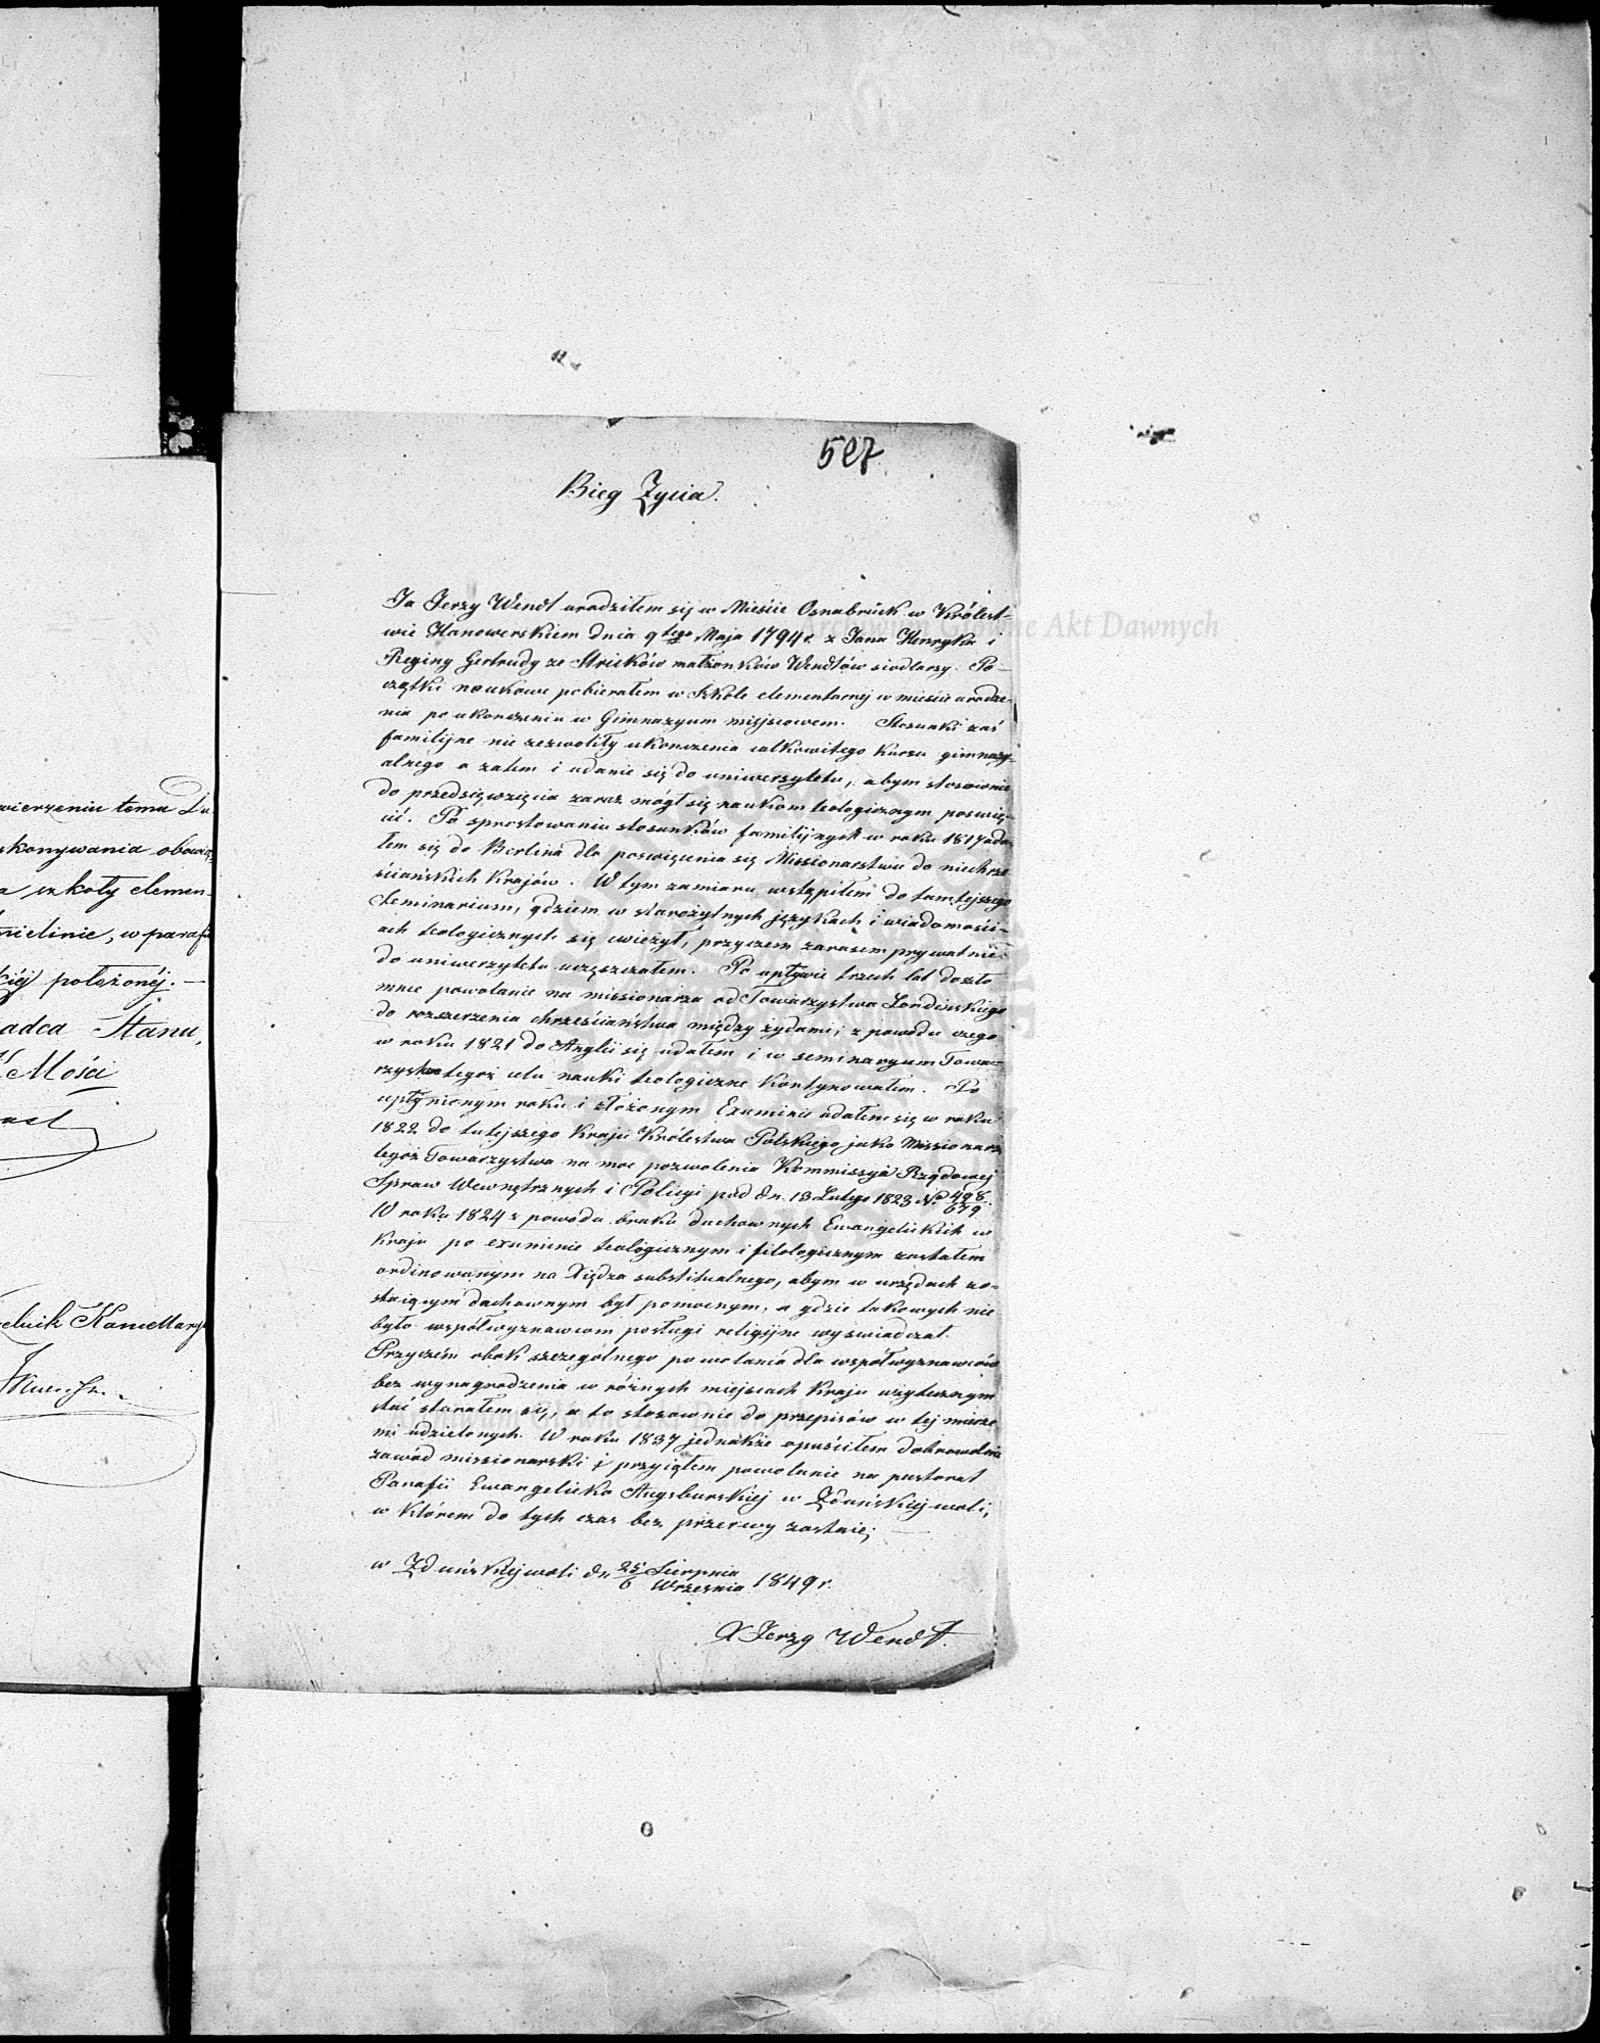 wierzeniu temu
skonywania obowią
a szkoły elemen-
w parafi
położonéj. —
adca Stanu,
Mości
Kancellaryi
527
Bieg Życia.
Ja Jerzy Wendt urodziłem się w Mieście Osnabrück w Królest-
wie Hanowerskiem dnia 9tego Maja 1794 r. z Jana Henryka i
Reginy Gertrudy ze Stricków małżonków Wendtów siodlarzy. Po-
czątki naukowe pobierałem w Szkole elementarnej w mieście urodze-
nia po ukończeniu w Gimnazyum miejscowem. Stosunki zaś
familijne nie zezwoliły ukończenia całkowitego kursu gimnazy-
alnego a zatem i udanie się do uniwersytetu, abym stosownie
do przedsięwzięcia zaraz mógł się naukom teologicznym poswię-
cić. Po sprostowaniu stosunków familijnych w roku 1817 uda-
łem się do Berlina dla poswięcenia się Missionarstwu do niechrze-
ściańskich Krajów. W tym zamiaru wstąpiłem do tamtejszego
Seminarium, gdziem w starożytnych językach i wiadomości-
ach teologicznych się cwieżył, przyczem zarasem prywatnie
do uniwerzytetu uczęszczałem. Po upływie trzech lat doszło
mnie powołanie na missionarza od Towarzystwa Londinskiego
do rozszerzenia chrześciaństwa między żydami, z powodu czego
w roku 1821 do Anglii się udałem i w seminaryum Towa-
rzystwa tegoż celu nauki teologiczne kontynowałem. Po
upłynionym roku i złożonym Examinie udałem się w roku
1822 do tutejszego Kraju Królestwa Polskiego jako Missionarz
tegoż Towarzystwa na moc pozwolenia Kommissyi Rządowej
Spraw Wewnętrznych i Policyi pod dn. 13 Lutego 1823 No 498/679
W roku 1824 z powodu braku duchownych Ewangelickich w
Kraju po examinie teologicznym i filologicznym zostałem
ordinowanym na Xiędza substitualnego, abym w urzędach zo-
staiącym duchownym był pomocnym, a gdzie takowych nie
było współwyznawcom posługi religijne wyswiadczał.
Przyczém obok szczególnego powołania dla współwyznawców
bez wynagrodzenia w różnych miejscach Kraju uzytecznym
stać starałem się, a to stosownie do przepisów w tej mierze
mi udzielonych. W roku 1837 jednakże opuściłem dobrowolnie
zawód missionarski i przyiąłem powołanie na pastorat
Parafii Ewangelicko Augsburskiej w Zduńskiej woli,
w którem do tych czas bez przerwy zostaię; —
w Zduńskiej woli dn. 25 Sierpnia / 6 Września 1849 r.
X Jerzy Wendt.
Archiwum Główne Akt Dawnych